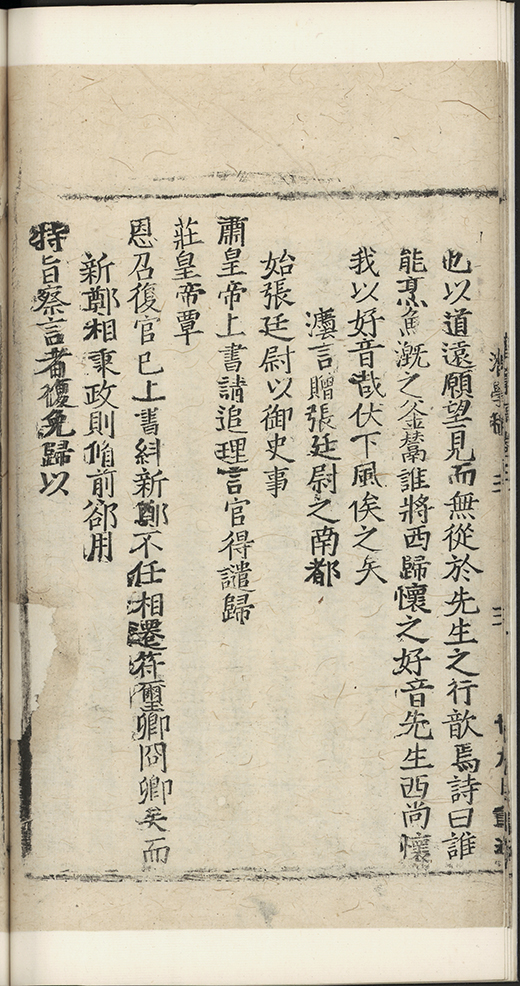 也以道遠願望見而無從於先生之行歆焉詩曰誰
能烹魚漑之釜鬵誰將西歸懷之好音先生西尚懷
我以好音哉伏下風俟之矣
讜言贈張廷尉之南都
始張廷尉以御史事
肅皇帝上書請追理言官得譴歸
莊皇帝覃
恩召復官已上書糾新鄭不任相遷符璽卿冏卿矣而
新鄭相秉政則脩前郤用
特旨察言者復免歸以